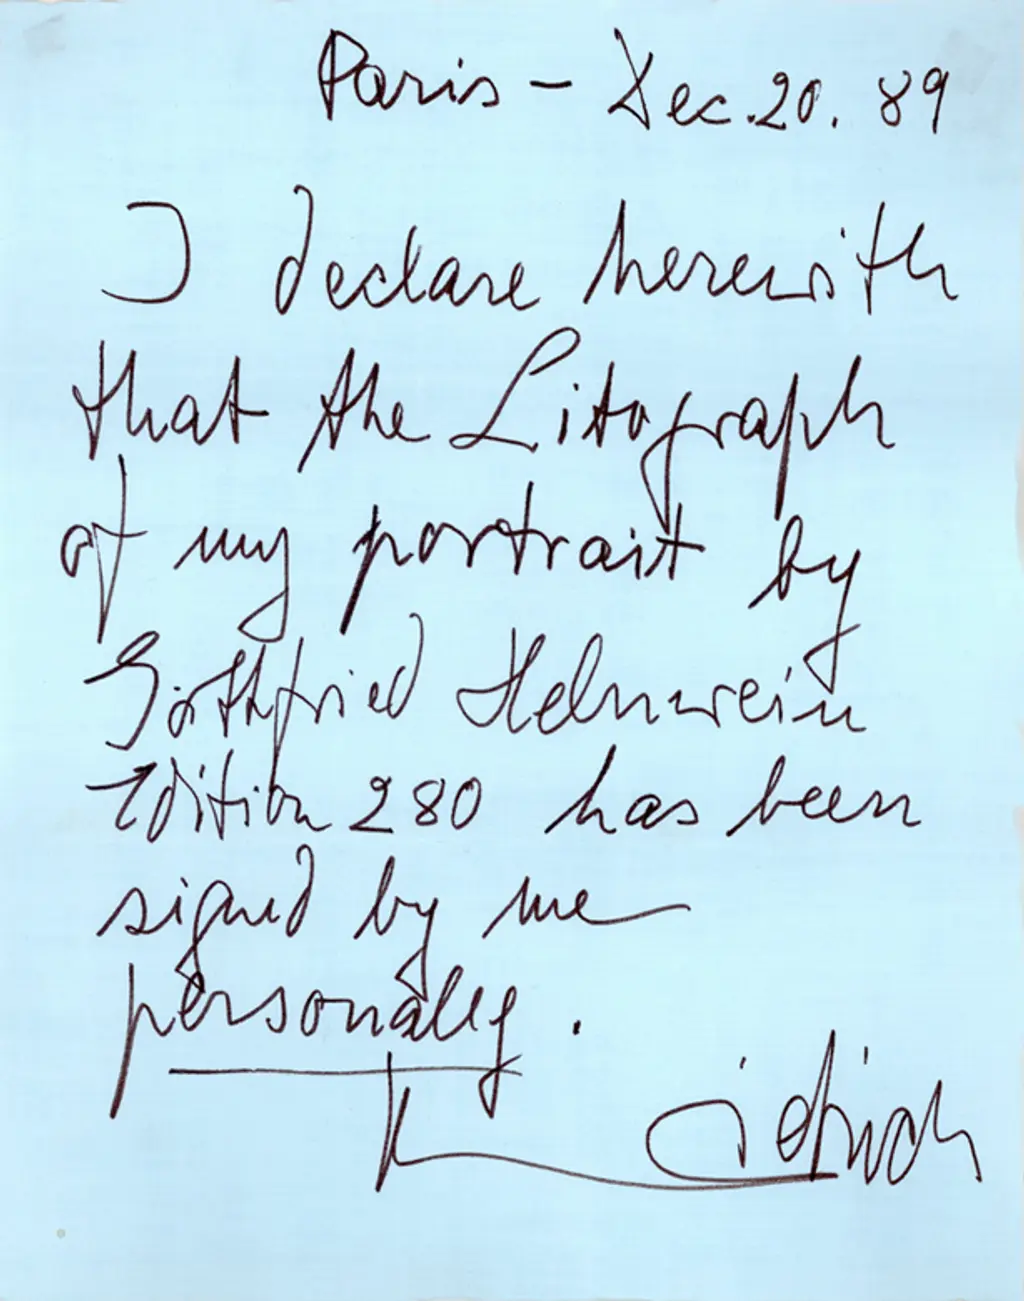 Paris - Dec. 20. 89
I declare herewith
that the Litograph
of my portrait by
Gottfried Helnwein
Edition 280 has been
signed by me
personally.